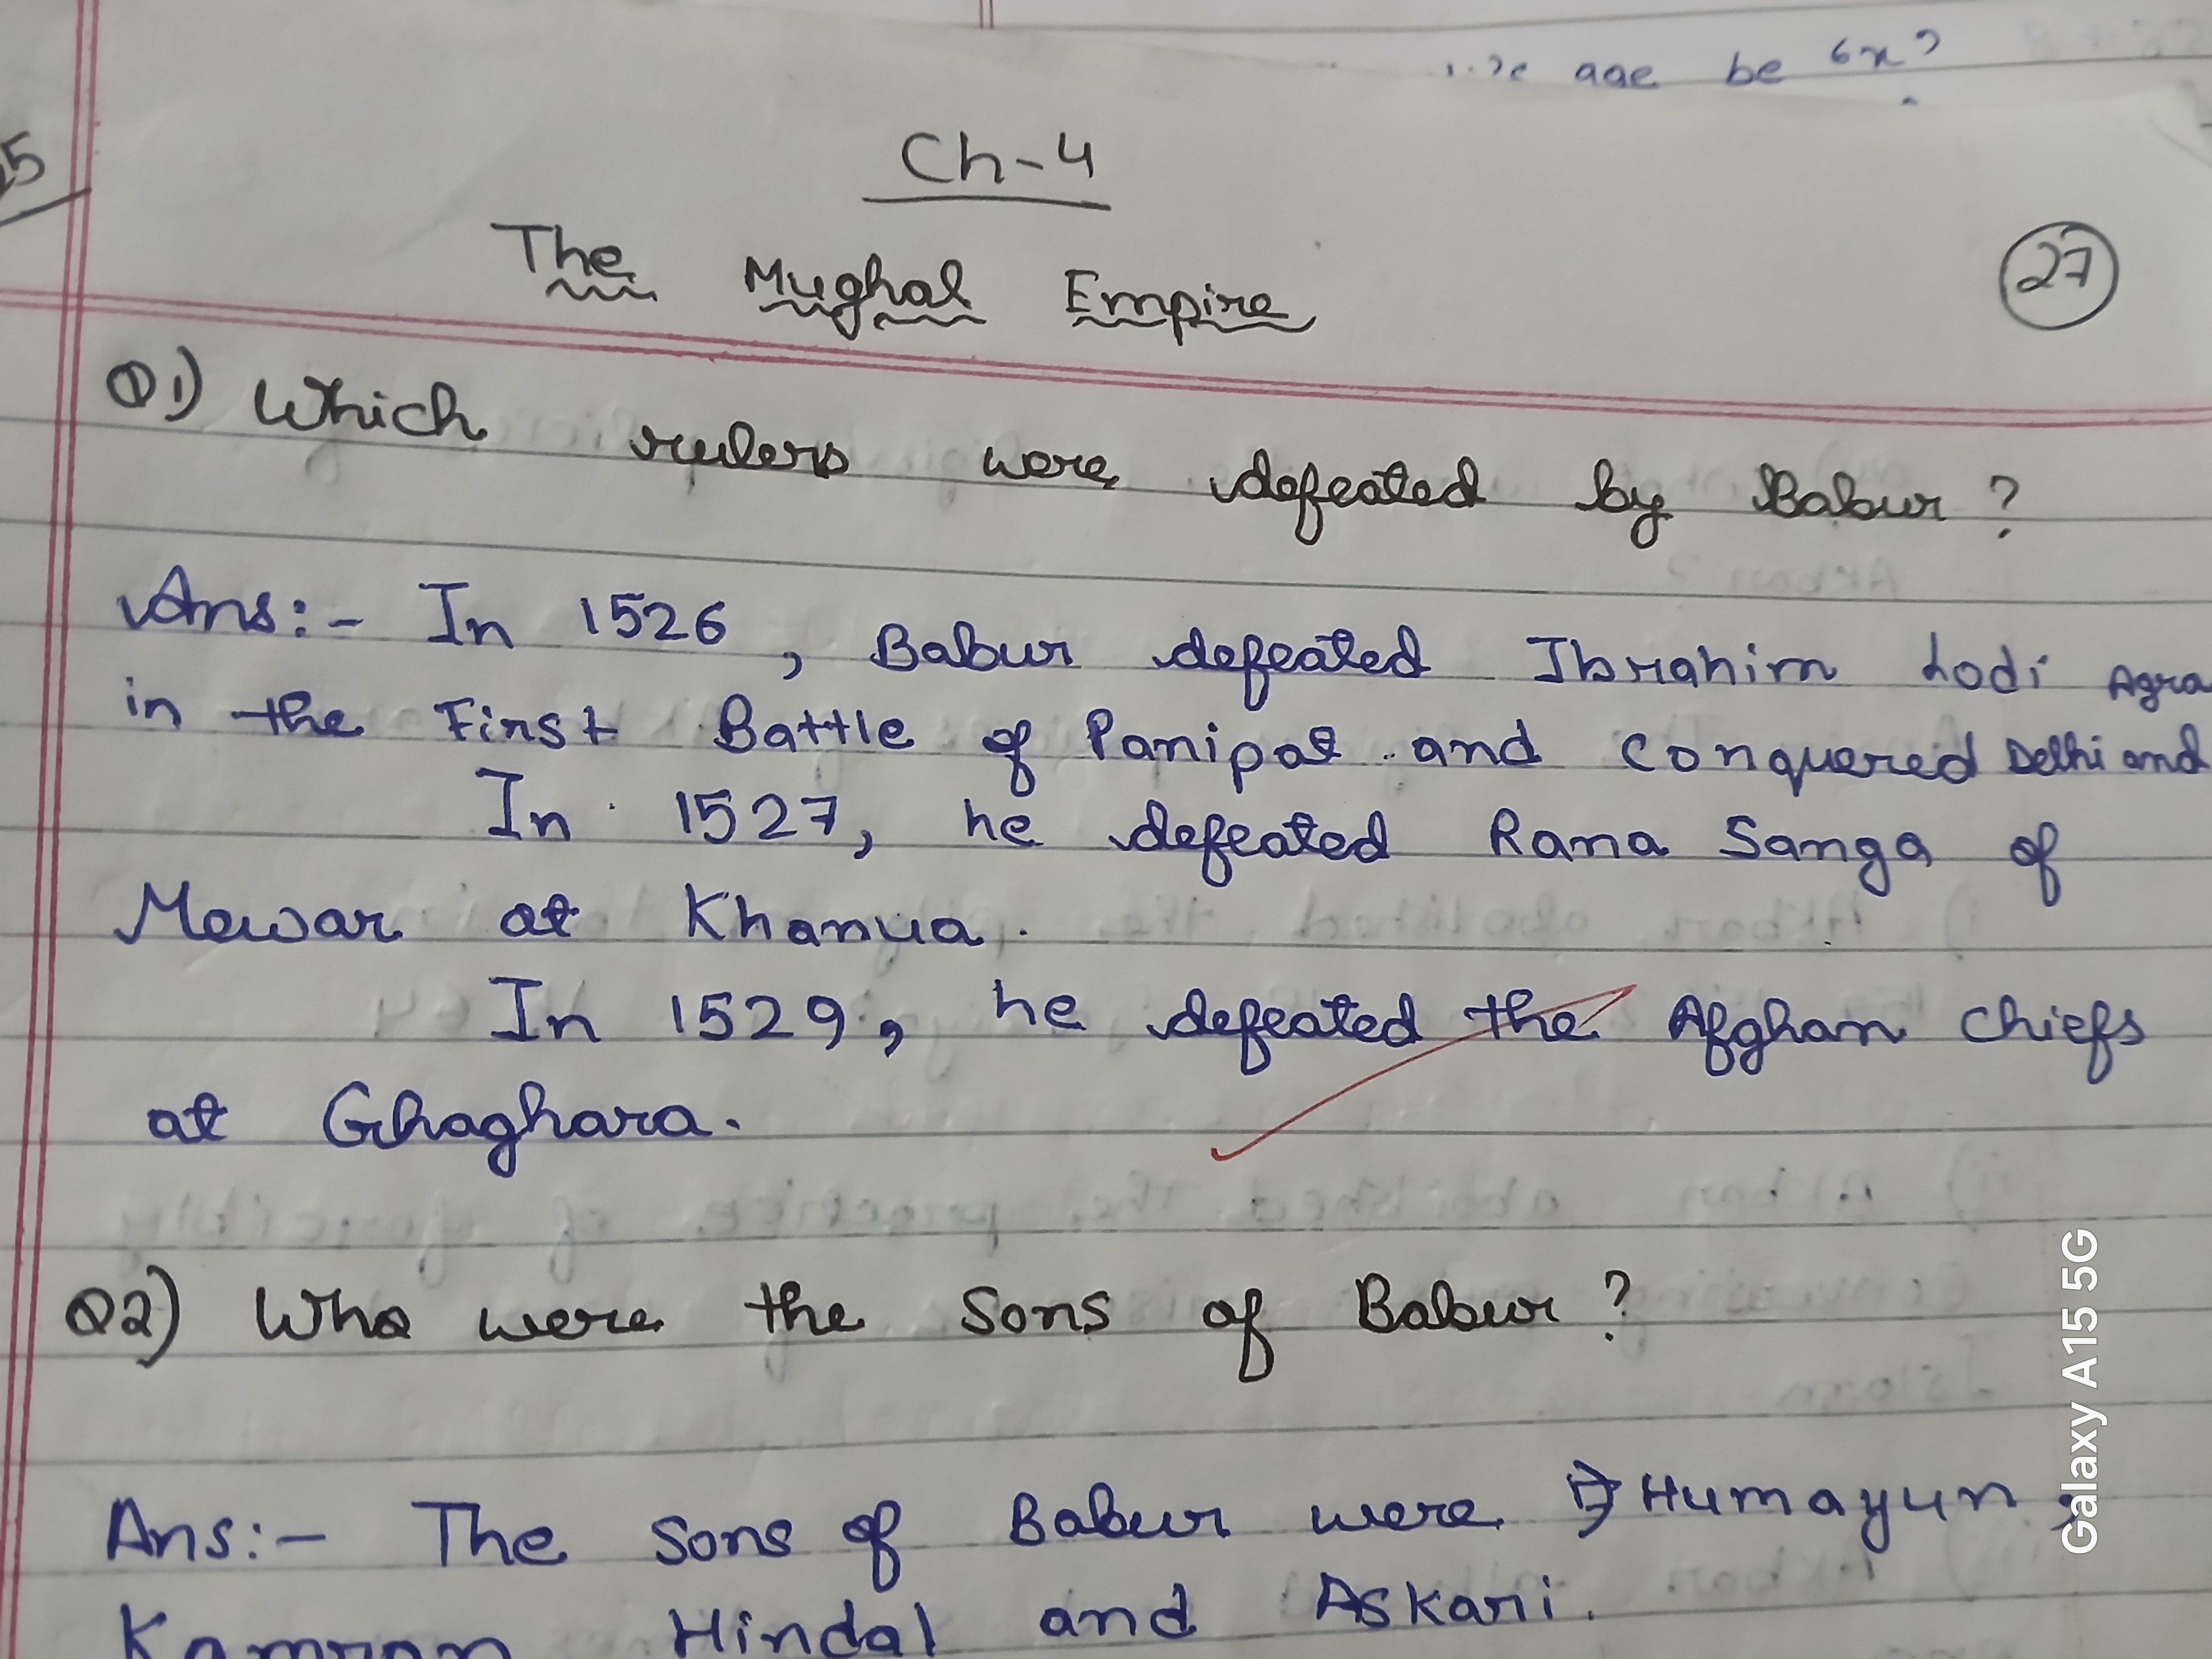 age be 6x?
Ch-4
The Mughal Empire
27
Q1) Which rulers were defeated by Babur?
Ans:- In 1526, Babur defeated Ibrahim Lodi Agra
in the First Battle of Panipat and conquered Delhi and
In 1527, he defeated Rana Sanga of
Mewar at Khanua.
In 1529, he defeated the Afghan chiefs
at Ghaghara.
Q2) Who were the sons of Babur?
Ans:- The sons of Babur were Humayun,
Kamran Hindal and Askari.
Galaxy A15 5G